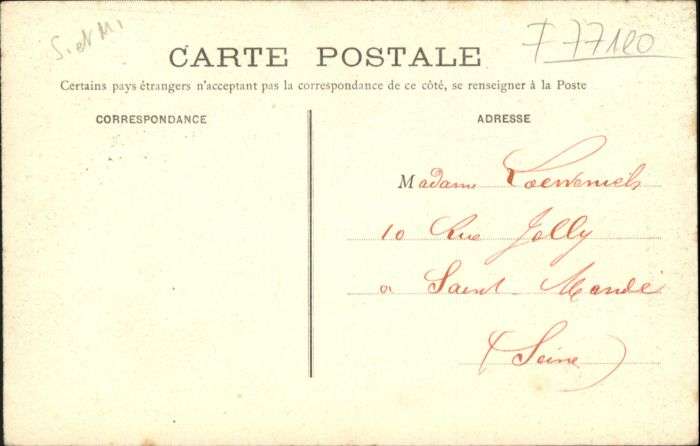 S. et M.
F 77120
CARTE POSTALE
Certains pays étrangers n'acceptant pas la correspondance de ce côté, se renseigner à la Poste
CORRESPONDANCE
ADRESSE
Madame
10 Rue Jolly
a Saint-Mandé
(Seine)